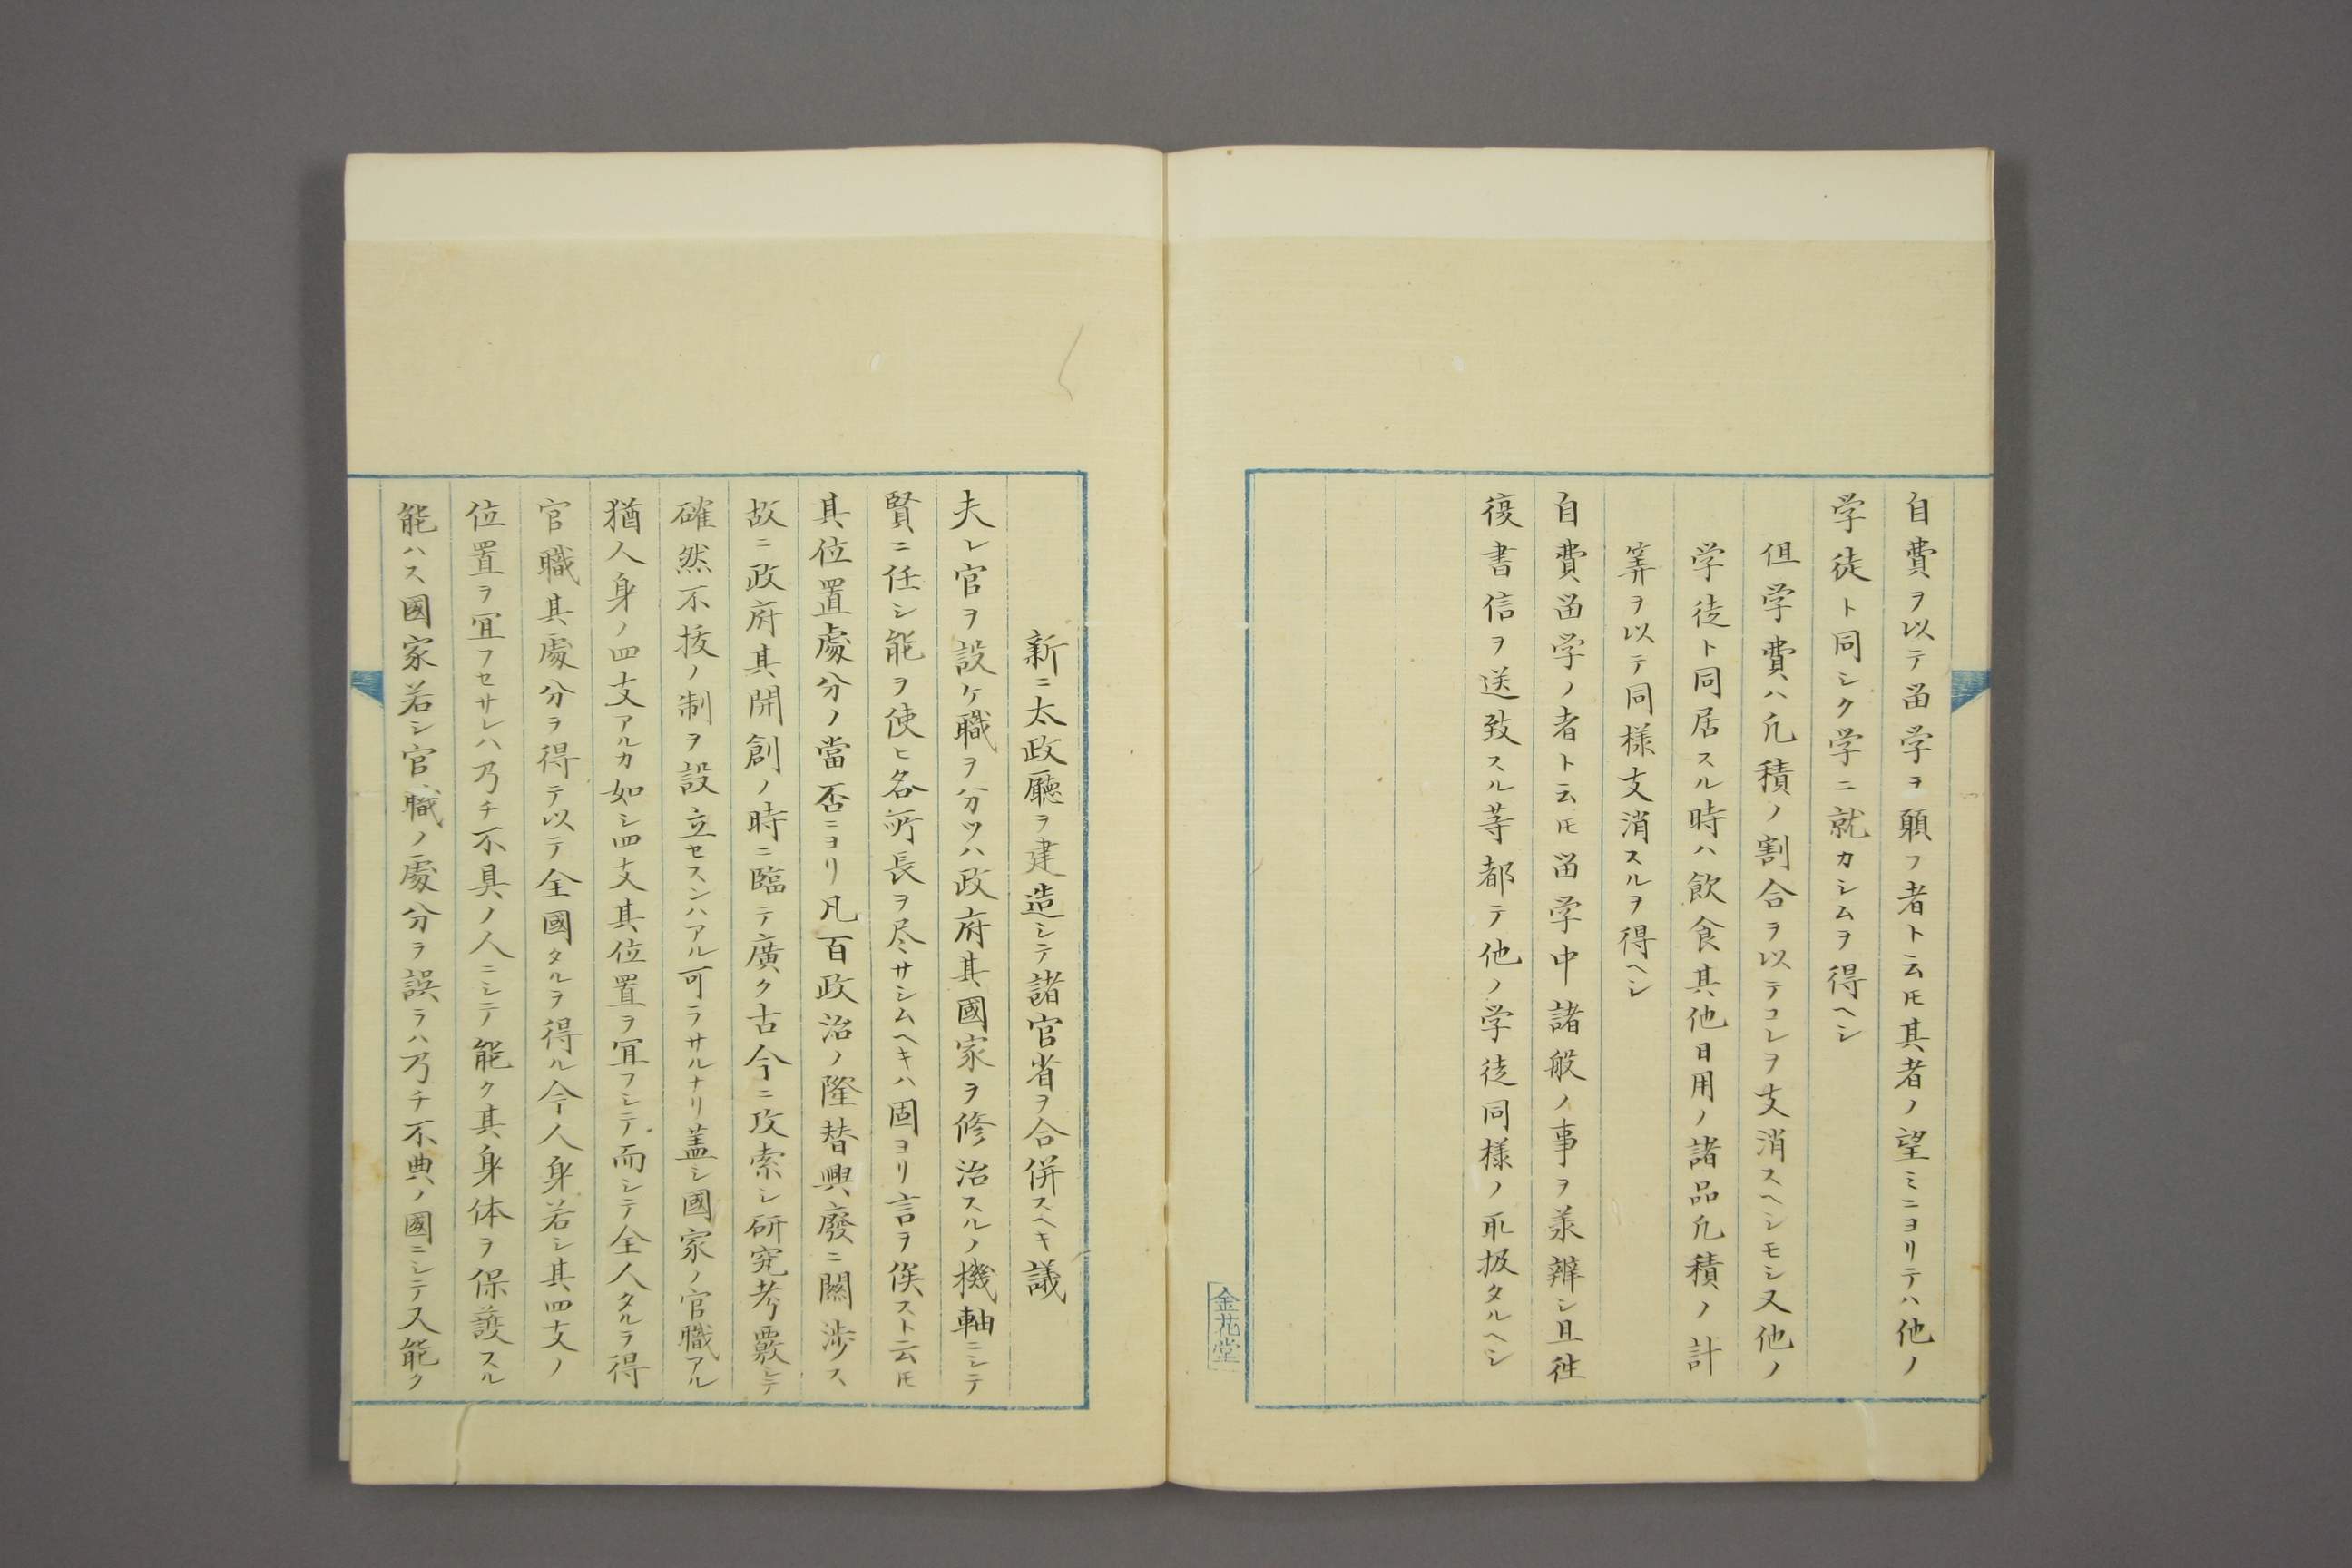 自費ヲ以テ畄学ヲ願フ者ト云𪜈其者ノ望ミニヨリテハ他ノ
学徒ト同シク学ニ就カシムヲ得ヘシ
但学費ハ凢積ノ割合ヲ以テコレヲ支消スヘシモシ又他ノ
学徒ト同居スル時ハ飲食其他日用ノ諸品凢積ノ計
筭ヲ以テ同様支消スルヲ得ヘシ
自費畄学ノ者ト云𪜈畄学中諸般ノ事ヲ羕辧シ且徃
復書信ヲ送致スル等都テ他ノ学徒同様ノ取扱タルヘシ
金花堂
新ニ太政廳ヲ建造シテ諸官省ヲ合併スヘキ議
夫レ官ヲ設ケ職ヲ分ツハ政府其國家ヲ修治スルノ機軸ニシテ
賢ニ任シ能ヲ使ヒ各所長ヲ尽サシムヘキハ固ヨリ言ヲ俟スト云𪜈
其位置處分ノ當否ニヨリ凡百政治ノ隆替興廢ニ關渉ス
故ニ政府其開創ノ時ニ臨テ廣ク古今ニ攷索シ研究考覈シテ
確然不抜ノ制ヲ設立セスンハアル可ラサルナリ蓋シ國家ノ官職アル
猶人身ノ四支アルカ如シ四支其位置ヲ冝フシテ而シテ全人タルヲ得
官職其處分ヲ得テ以テ全國タルヲ得ル今人身若シ其四支ノ
位置ヲ冝フセサレハ乃チ不具ノ人ニシテ能ク其身体ヲ保護スル
能ハス國家若シ官職ノ處分ヲ誤ラハ乃チ不典ノ國ニシテ又能ク